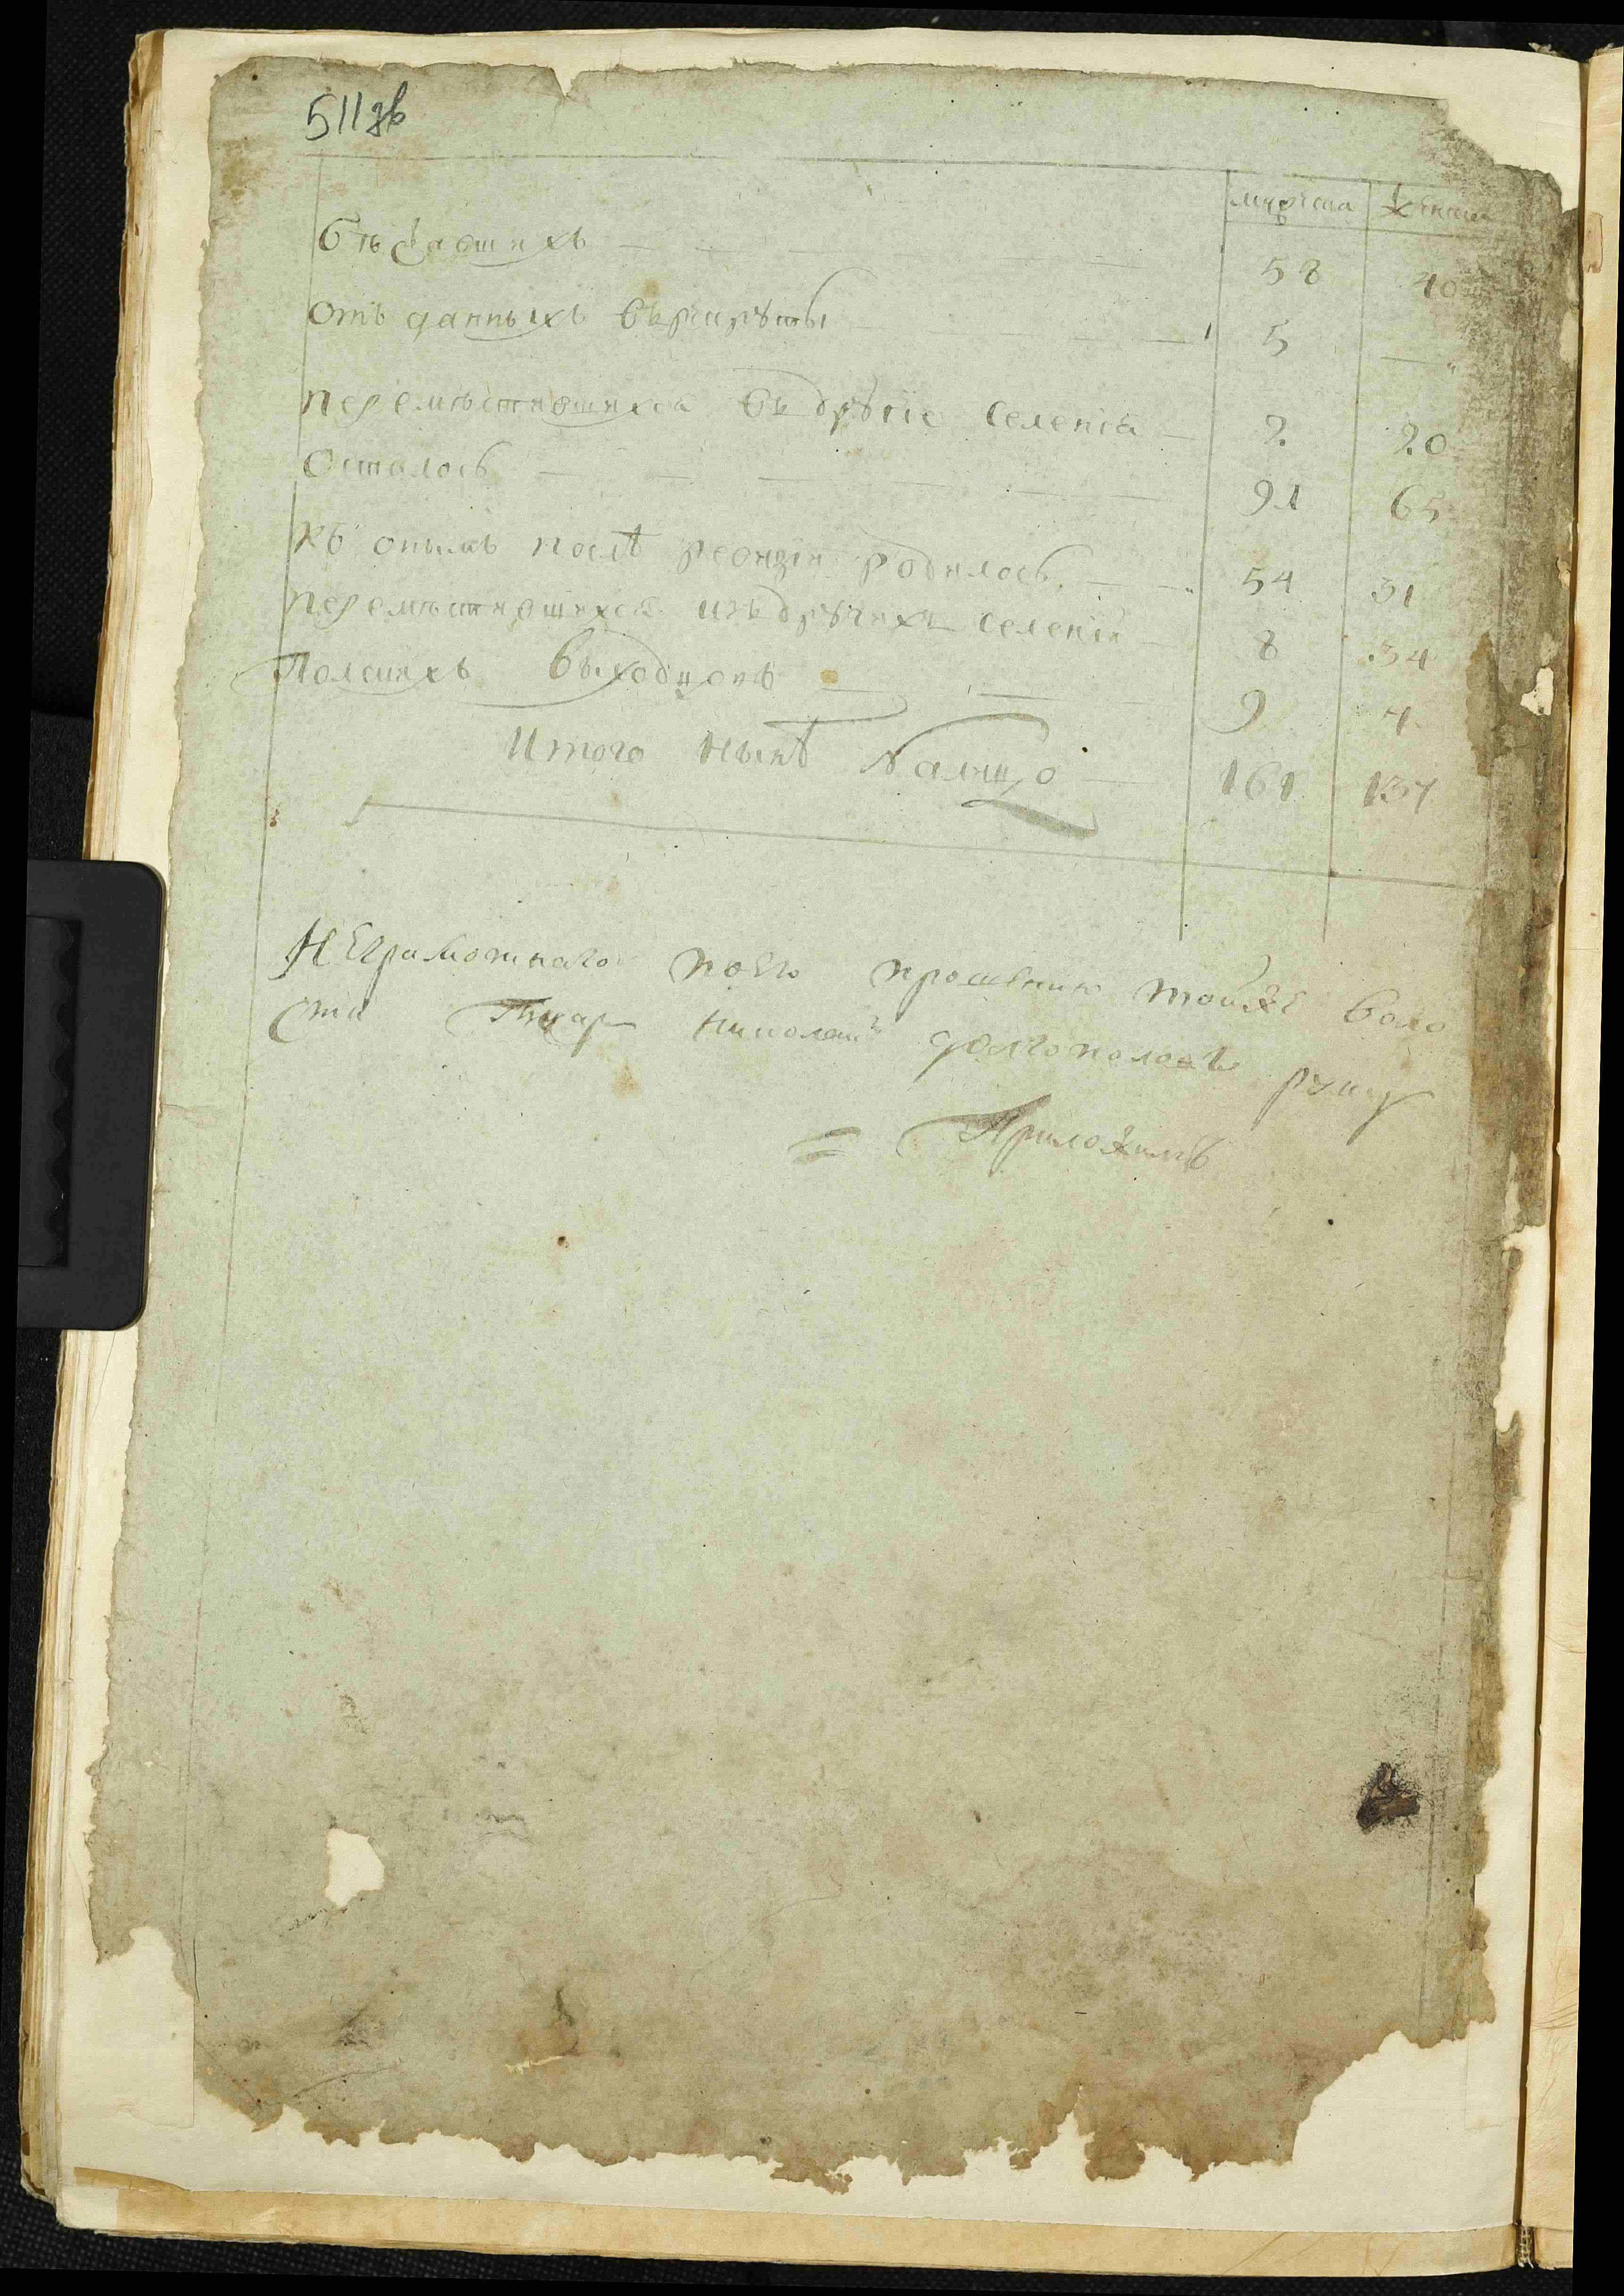 511 зв
мужеска женска
бѣжавшихъ — 58 40
отъданныхъ врекруты — 5 —
перемѣстившихся въ другіе селенія — 2 20
осталось — 91 65
къ онымъ послѣ ревизіи родилось — 54 31
перемѣстившихся изъ другихъ селеніи — 8 34
полскихъ выходцовъ — 9 7
Итого нынѣ налицо — 161 137
Неграмотнаго поего прошению тойже воло
сти Писарь николаи долгополовъ руку
= Приложилъ